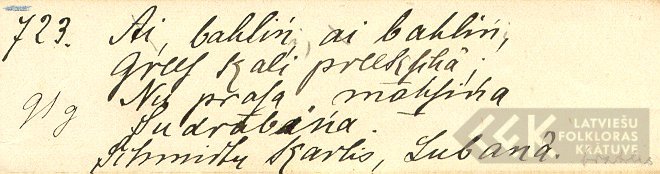 723. Ai, bahliń, ai bahliń,
Greef kali preekfchâ
Nu prafa mahfiņa
919 Sudrabiņa.
Schmidtu Karlis, Lubanâ.
LATVIEŠU
FOLKLORAS
KRĀTUVE